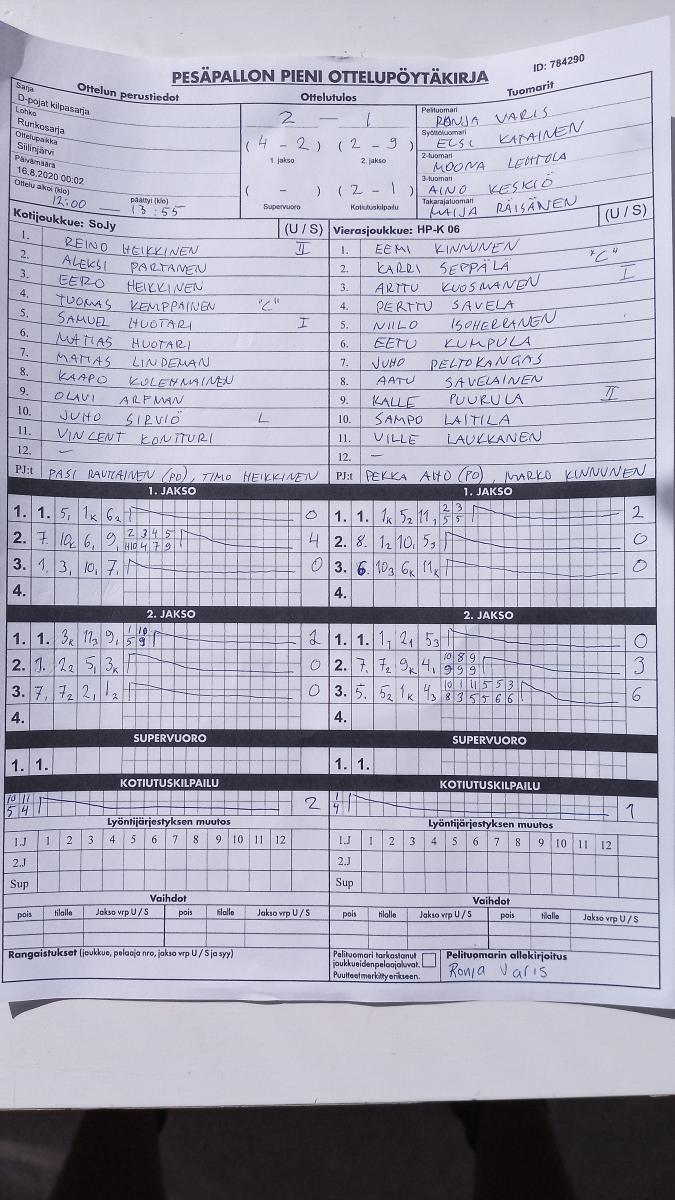 PESÄPALLON PIENI OTTELUPÖYTÄKIRJA
ID: 784290
Ottelun perustiedot
Ottelutulos
Tuomarit
Sarja
D-pojat kilpasarja
Lohko
Runkosarja
Ottelupaikka
Siilinjärvi
Päivämäärä
16.8.2020 00:02
Ottelu alkoi (klo) päättyi (klo)
12:00 — 13:55
2 — 1
(4 - 2) (2 - 9)
1. jakso 2. jakso
( - ) (2 - 1)
Supervuoro Kotiutuskilpailu
Pelituomari
RONJA VARIS
Syöttötuomari
ELSI KATAINEN
2-tuomari
MOONA LEHTOLA
3-tuomari
AINO KESKIÖ
Takarajatuomari
MAIJA RÄISÄNEN
Kotijoukkue: SoJy (U / S)
1. REINO HEIKKINEN II
2. ALEKSI PARTANEN
3. EERO HEIKKINEN
4. TUOMAS KEMPPAINEN "C"
5. SAMUEL HUOTARI I
6. MATIAS HUOTARI
7. MATIAS LINDEMAN
8. KAAPO KOLEHMAINEN
9. OLAVI ARFMAN
10. JUHO SIRVIÖ L
11. VINCENT KONTTURI
12. —
PJ:t PASI RAUTIAINEN (PO), TIMO HEIKKINEN
Vierasjoukkue: HP-K 06 (U / S)
1. EEMI KINNUNEN
2. KARRI SEPPÄLÄ "C"
3. ARTTU KUOSMANEN I
4. PERTTU SAVELA
5. NIILO ISOHERRANEN
6. EETU KUMPULA
7. JUHO PELTOKANGAS
8. AATU SAVELAINEN
9. KALLE PUURULA II
10. SAMPO LAITILA
11. VILLE LAUKKANEN
12. —
PJ:t PEKKA AHO (PO), MARKO KINNUNEN
1. JAKSO
1. 1. 5₁ 1k 6₂ 0
2. 7. 10k 6₁ 9₁ 4
3. 1. 3₁ 10₁ 7₁ 0
4.
1. JAKSO
1. 1. 1k 5₂ 11₁ 2 3 2
5 5
2. 8. 1₂ 10₁ 5₃ 0
3. 6. 10₃ 6k 11k 0
4.
2. JAKSO
1. 1. 3k 11₃ 9₁ 1 10 2
5 9
2. 1. 2₂ 5₁ 3k 0
3. 7. 7₂ 2₁ 1₂ 0
4.
2. JAKSO
1. 1. 1₁ 2₁ 5₃ 0
2. 7. 7₂ 9k 4₁ 10 8 9 3
9 9 9
3. 5. 5₂ 1k 4₃ 10 1 11 5 5 3 6
8 3 5 5 6 6
4.
SUPERVUORO
1. 1.
SUPERVUORO
1. 1.
KOTIUTUSKILPAILU
10 11 2
5 4
KOTIUTUSKILPAILU
1 1
4
Lyöntijärjestyksen muutos
1.J 1 2 3 4 5 6 7 8 9 10 11 12
2.J
Sup
Lyöntijärjestyksen muutos
1.J 1 2 3 4 5 6 7 8 9 10 11 12
2.J
Sup
Vaihdot
pois tilalle Jakso vrp U / S pois tilalle Jakso vrp U / S
Vaihdot
pois tilalle Jakso vrp U / S pois tilalle Jakso vrp U / S
Rangaistukset (joukkue, pelaaja nro, jakso vrp U / S ja syy)
Pelituomari tarkastanut
joukkueiden pelaajaluvat.
Puutteet merkitty erikseen.
Pelituomarin allekirjoitus
Ronja Varis